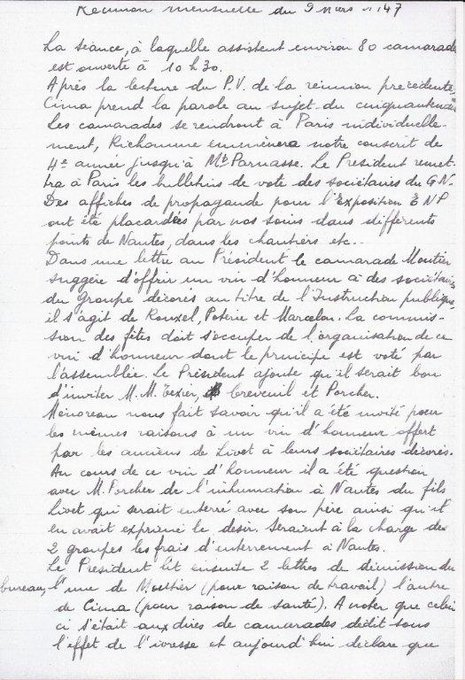 Réunion mensuelle du 9 Mars 1947
La séance, à laquelle assistent environ 80 camarades
est ouverte à 10 h 30.
Après la lecture du P.V. de la réunion précédente,
Cima prend la parole au sujet du cinquantenaire
les camarades se rendront à Paris individuelle-
ment, Richomme emmènera notre conscrit de
4e année jusqu'à Mt Parnasse. Le Président remet-
tra à Paris les bulletins de vote des sociétaires du G.N.
Des affiches de propagande pour l'Exposition E N P
ont été placardées par nos soins dans différents
points de Nantes, dans les chantiers etc..
Dans une lettre au Président le camarade Moutier
suggère d'offrir un vin d'honneur à des sociétaires
du Groupe décorés au titre de l'Instruction publique,
il s'agit de Rouxel, Poterie et Marcelon. La commis-
sion des fêtes doit s'occuper de l'organisation de ce
vin d'honneur dont le principe est voté par
l'assemblée. Le Président ajoute qu'il serait bon
d'inviter M.M. Texier, Creveuil et Porcher.
Ménoreau nous fait savoir qu'il a été invité pour
les mêmes raisons à un vin d'honneur offert
par les anciens de Livet à leurs sociétaires décorés.
Au cours de ce vin d'honneur il a été question
avec M. Porcher de l'inhumation à Nantes du fils
Livet qui serait enterré avec son père ainsi qu'il
en avait exprimé le désir. Seraient à la charge des
2 groupes les frais d'enterrement à Nantes.
Le Président lit ensuite 2 lettres de démission du
bureau, l'une de Moutier (pour raison de travail) l'autre
de Cima (pour raison de santé). A noter que celui
ci s'était aux dires de camarades dédit sous
l'effet de l'ivresse et aujourd'hui déclare que